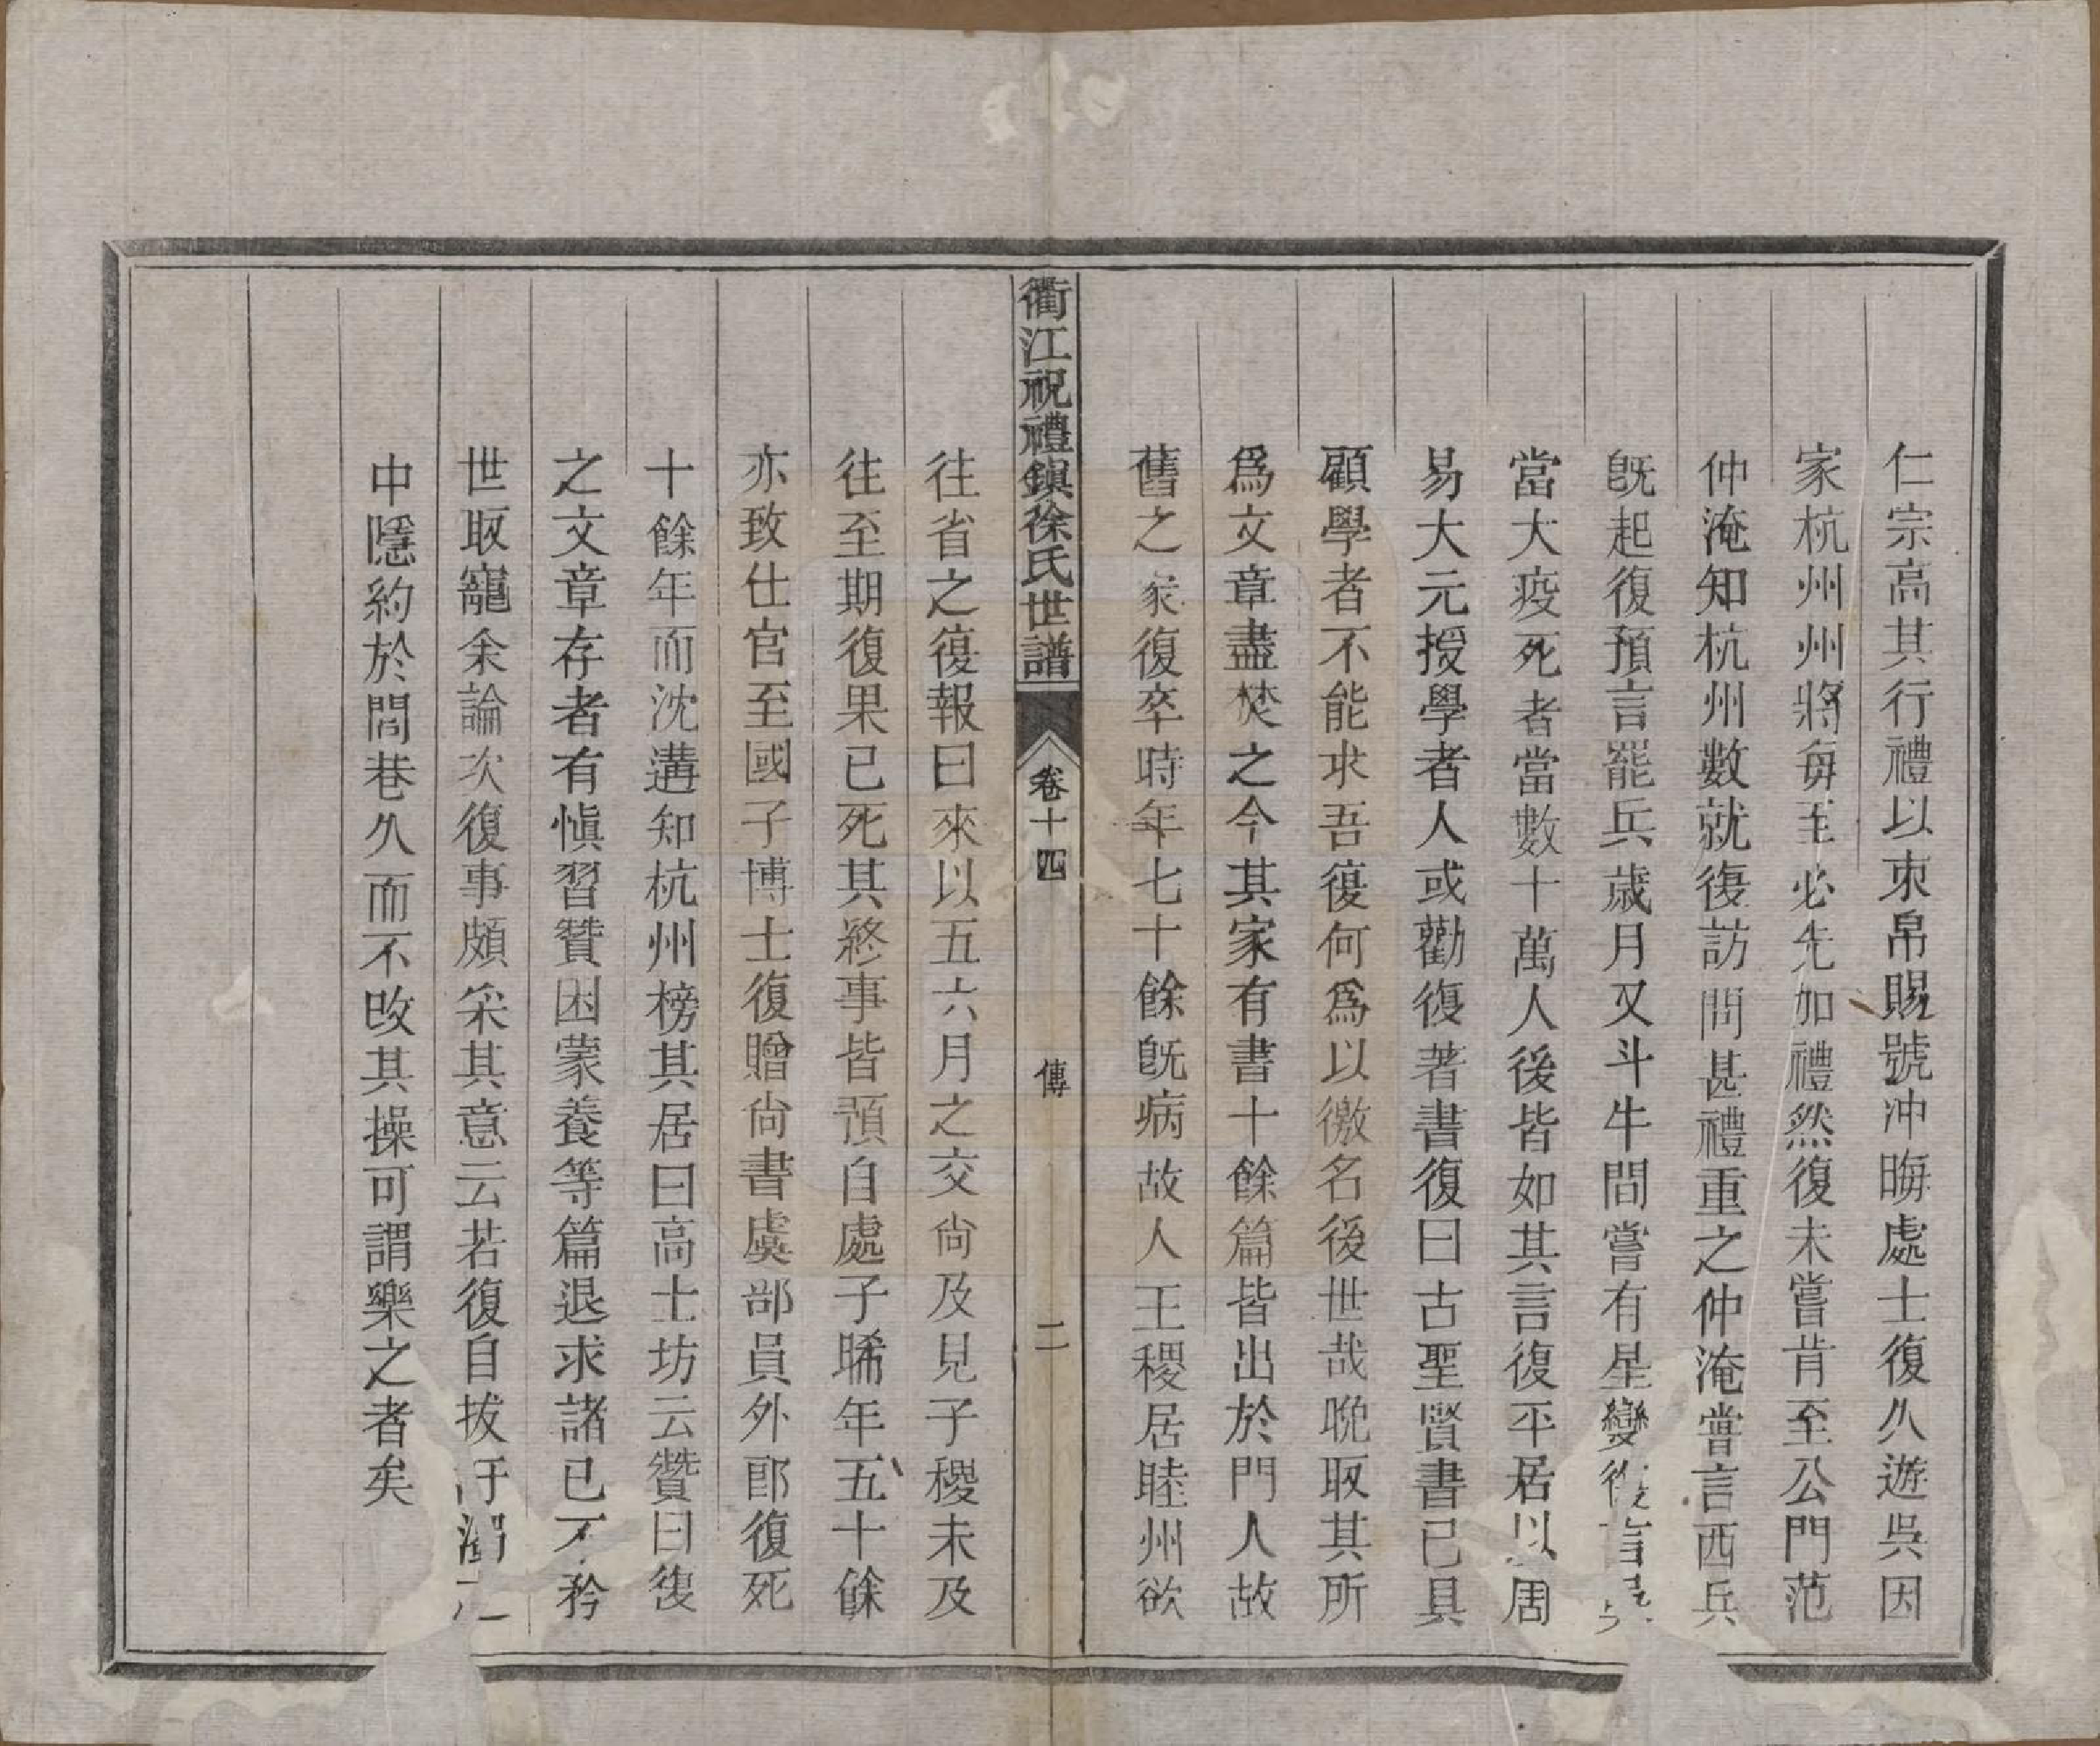 仁宗高其行禮以束帛賜號冲晦處士復久遊吳因
家杭州州將每至必先加禮然復未嘗肯至公門范
仲淹知杭州數就復訪問甚禮重之仲淹嘗言西兵
旣起復預言罷兵歲月又斗牛間嘗有星變復言
當大疫死者當數十萬人後皆如其言復平居以周
易大元授學者人或勸復著書復曰古聖賢書已具
顧學者不能求吾復何爲以徼名後世哉晩取其所
爲文章盡焚之今其家有書十餘篇皆出於門人故
舊之家復卒時年七十餘旣病故人王稷居睦州欲
衢江祝禮鎭徐氏世譜 卷十四 傳 二
往省之復報曰來以五六月之交尙及見子稷未及
往至期復果已死其終事皆預自處子晞年五十餘
亦致仕官至國子博士復贈尙書虞部員外郎復死
十餘年而沈遘知杭州榜其居曰高士坊云贊曰復
之文章存者有愼習贊困蒙養等篇退求諸已不矜
世取寵余論次復事頗采其意云若復自拔汙濁之
中隱約於閭巷久而不改其操可謂樂之者矣